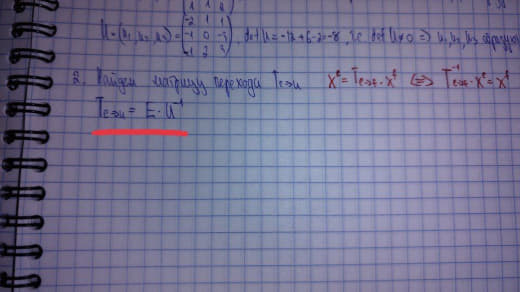 1 1 2
U = (u₁, u₂, u₃) = (-2 1 1
-1 0 -3
-1 2 3), det U = -12+6-2=-8, т.к. det U ≠ 0 => u₁, u₂, u₃
2. Найдем матрицу перехода Te→u Xᵉ = Te→f · Xᶠ <=> T⁻¹e→f · Xᵉ = Xᶠ
Te→u = E · U⁻¹